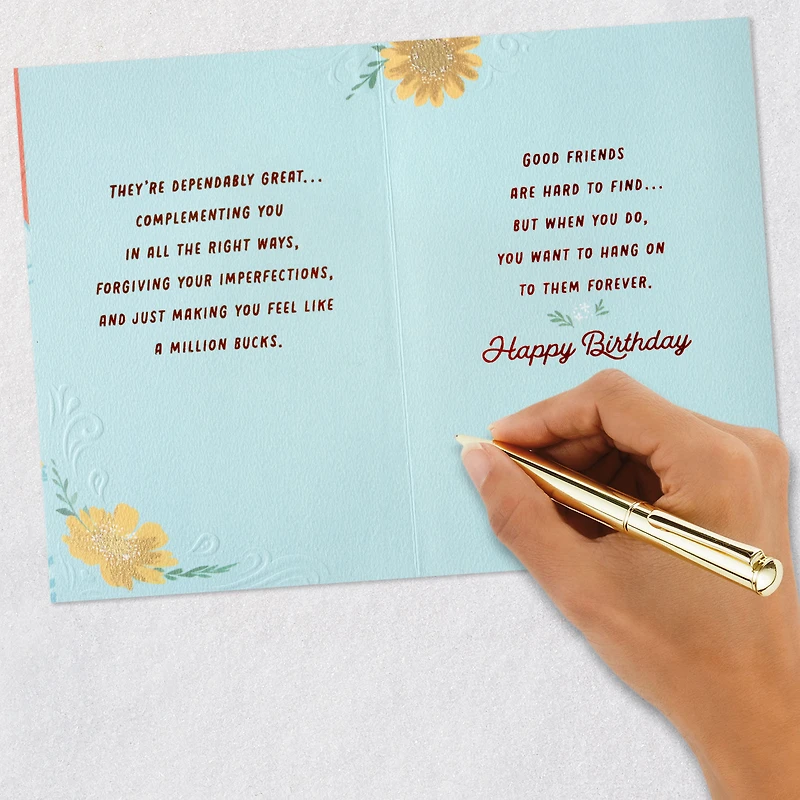 THEY'RE DEPENDABLY GREAT...
COMPLEMENTING YOU
IN ALL THE RIGHT WAYS,
FORGIVING YOUR IMPERFECTIONS,
AND JUST MAKING YOU FEEL LIKE
A MILLION BUCKS.
GOOD FRIENDS
ARE HARD TO FIND...
BUT WHEN YOU DO,
YOU WANT TO HANG ON
TO THEM FOREVER.
Happy Birthday